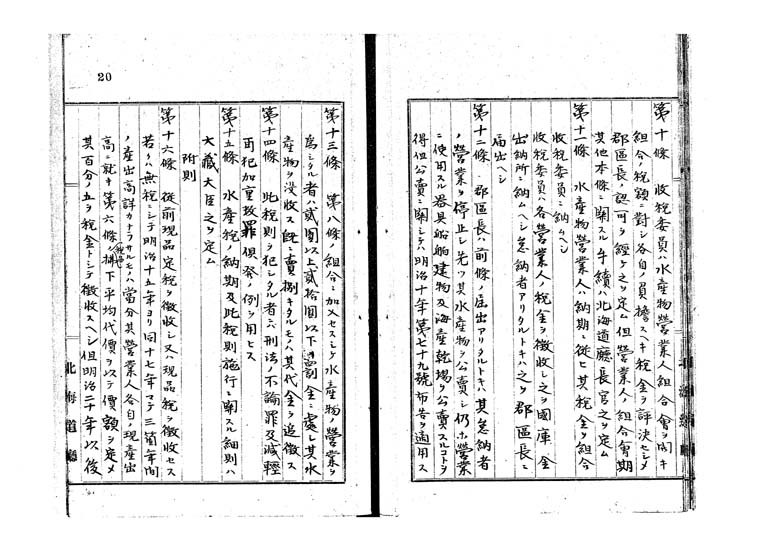 第十條 收稅委員ハ水產物營業人組合會ヲ開キ
組合ノ稅額ニ對シ各自ノ負擔スヘキ稅金ヲ評決セシメ
郡區長ノ認可ヲ經テ之ヲ定ム但營業人ノ組合會期
其他本條ニ關スル手續ハ北海道廳長官之ヲ定ム
第十一條 水產物營業人ハ納期ニ從ヒ其稅金ヲ組合
收稅委員ニ納ムヘシ
收稅委員ハ各營業人ノ稅金ヲ徵收シ之ヲ國庫金
出納所ニ納ムヘシ怠納者アリタルトキハ之ヲ郡區長ニ
屆出ヘシ
第十二條 郡區長ハ前條ノ屆出アリタルトキハ其怠納者
ノ營業ヲ停止シ先ツ其水產物ヲ公賣シ仍ホ營業
ニ使用スル器具船舶建物及海產乾場ヲ公賣スルコトヲ
得但公賣ニ關シテハ明治十年第七十九號布告ヲ適用ス
20
第十三條 第八條ノ組合ニ加入セスシテ水產物ノ營業ヲ
爲シタル者ハ貳圓以上貳拾圓以下ノ罰金ニ處シ其水
產物ヲ沒收ス旣ニ賣捌キタルモノハ其代金ヲ追徵ス
第十四條 此稅則ヲ犯シタル者ニハ刑法ノ不論罪及減輕
再犯加重數罪俱發ノ例ヲ用ヒス
第十五條 水產稅ノ納期及此稅則施行ニ關スル細則ハ
大藏大臣之ヲ定ム
附則
第十六條 從前現品定稅ヲ徵收シ又ハ現品稅ヲ徵收セス
若クハ無稅ニシテ明治十五年ヨリ同十七年マテ三箇年間
ノ產出高詳カナラサルモノハ當分其營業人各自ノ現產出
高ニ就キ第六條ノ 下平均代價ヲ以テ價額ヲ定メ
其百分ノ五ヲ稅金トシテ徵收スヘシ但明治二十年以後
北海道廳